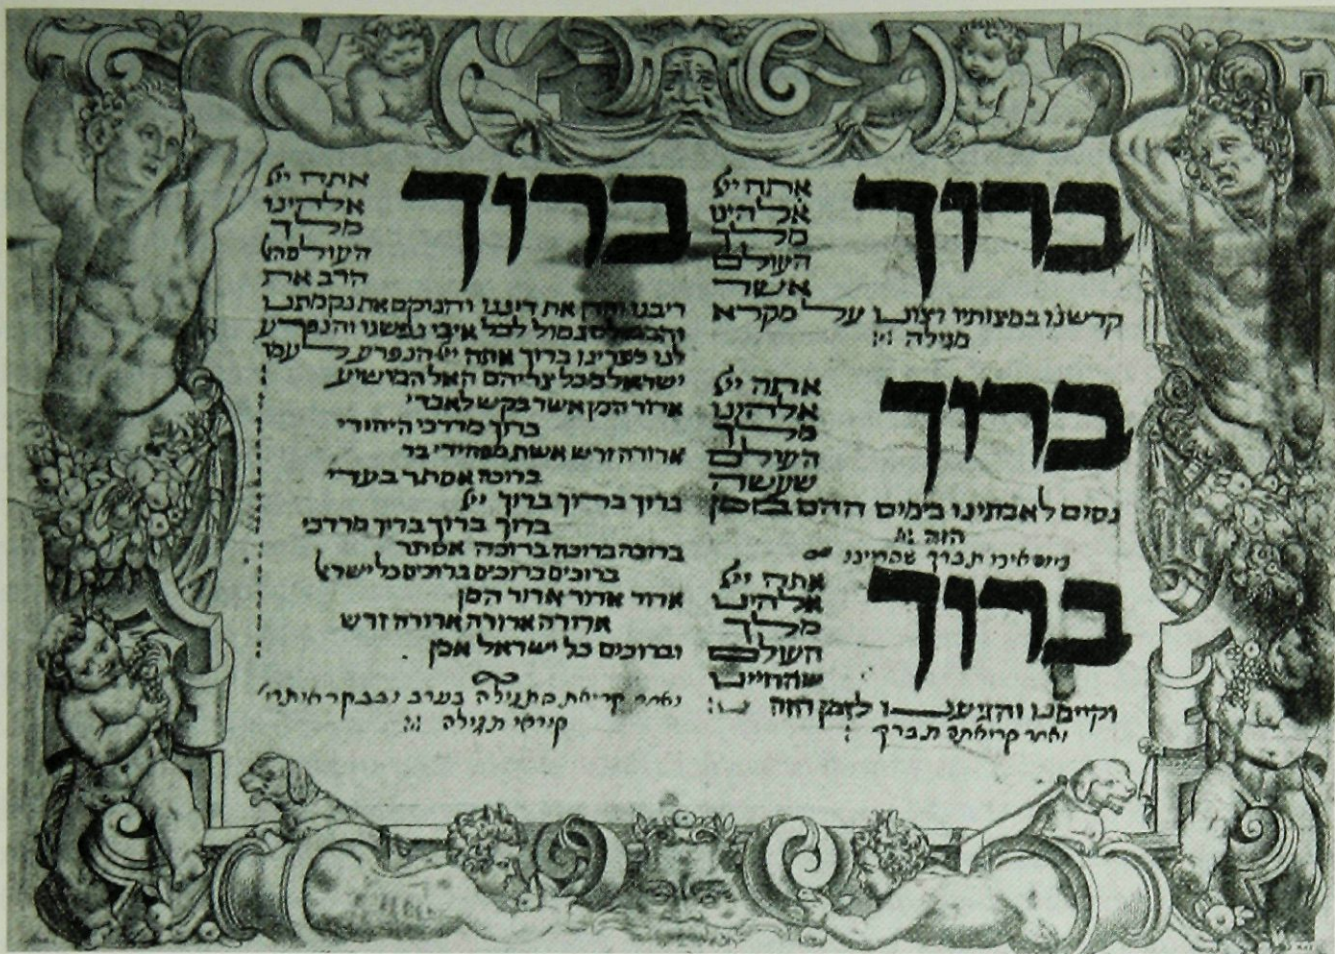 ברוך
אתה ייי
אלהינו
מלך
העולם
אשר
קדשנו במצותיו וצונו על מקרא
מגילה
ברוך
אתה ייי
אלהינו
מלך
העולם
שעשה
נסים לאבתינו בימים ההם בזמן
הזה
ברוך
אתה ייי
אלהינו
מלך
העולם
שהחיינו
וקיימנו והגיענו לזמן הזה
ואחר קריאתה תברך
ברוך
אתה ייי
אלהינו
מלך
העולם
הרב את
ריבנו והדן את דיננו והנוקם את נקמתנו
והמשלם גמול לכל איבי נפשנו והנפרע
לנו מצרינו ברוך אתה ייי הנפרע לעמו
ישראל מכל צריהם האל המושיע
ארור המן אשר בקש לאבדי
ברוך מרדכי היהודי
ארורה זרש אשת מפחידי
ברוכה אסתר בעדי
ברוך ברוך ברוך ייי
ברוך ברוך ברוך מרדכי
ברוכה ברוכה ברוכה אסתר
ברוכים ברוכים ברוכים כל ישראל
ארור ארור ארור המן
ארורה ארורה ארורה זרש
וברוכים כל ישראל אמן
קריאת המגילה בערב ובבקר